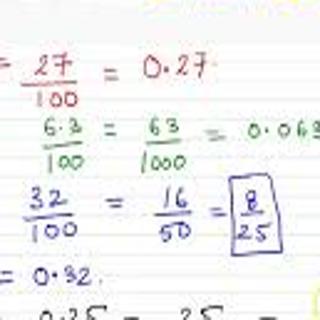 = 27/100 = 0.27
6.3/100 = 63/1000 = 0.063
32/100 = 16/50 = 8/25
= 0.32.